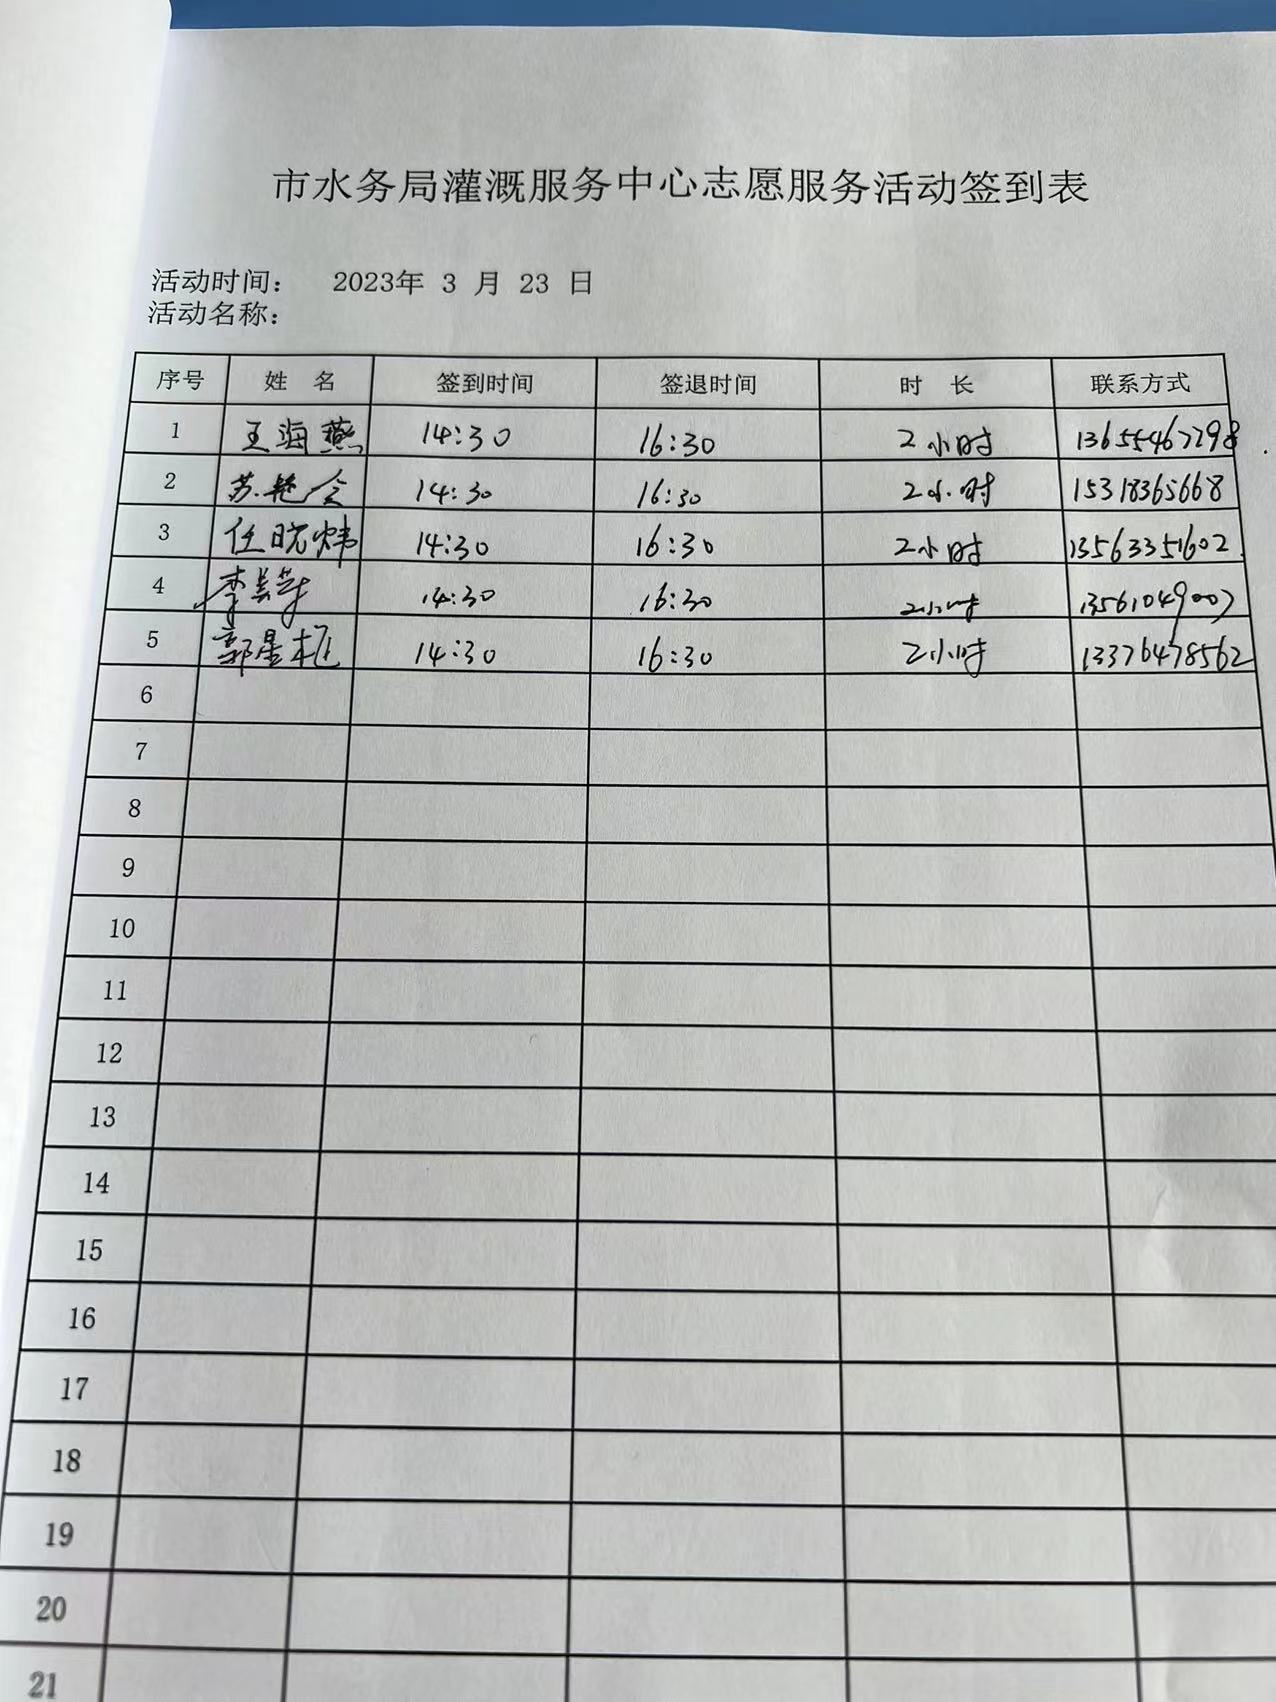 市水务局灌溉服务中心志愿服务活动签到表
活动时间： 2023年 3 月 23 日
活动名称：
序号 姓 名 签到时间 签退时间 时 长 联系方式
1 王海燕 14:30 16:30 2小时 13655467298
2 苏艳会 14:30 16:30 2小时 15318365668
3 任晓炜 14:30 16:30 2小时 13563351602
4 14:30 16:30 2小时 13561049007
5 郭星 14:30 16:30 2小时 13376478562
6
7
8
9
10
11
12
13
14
15
16
17
18
19
20
21